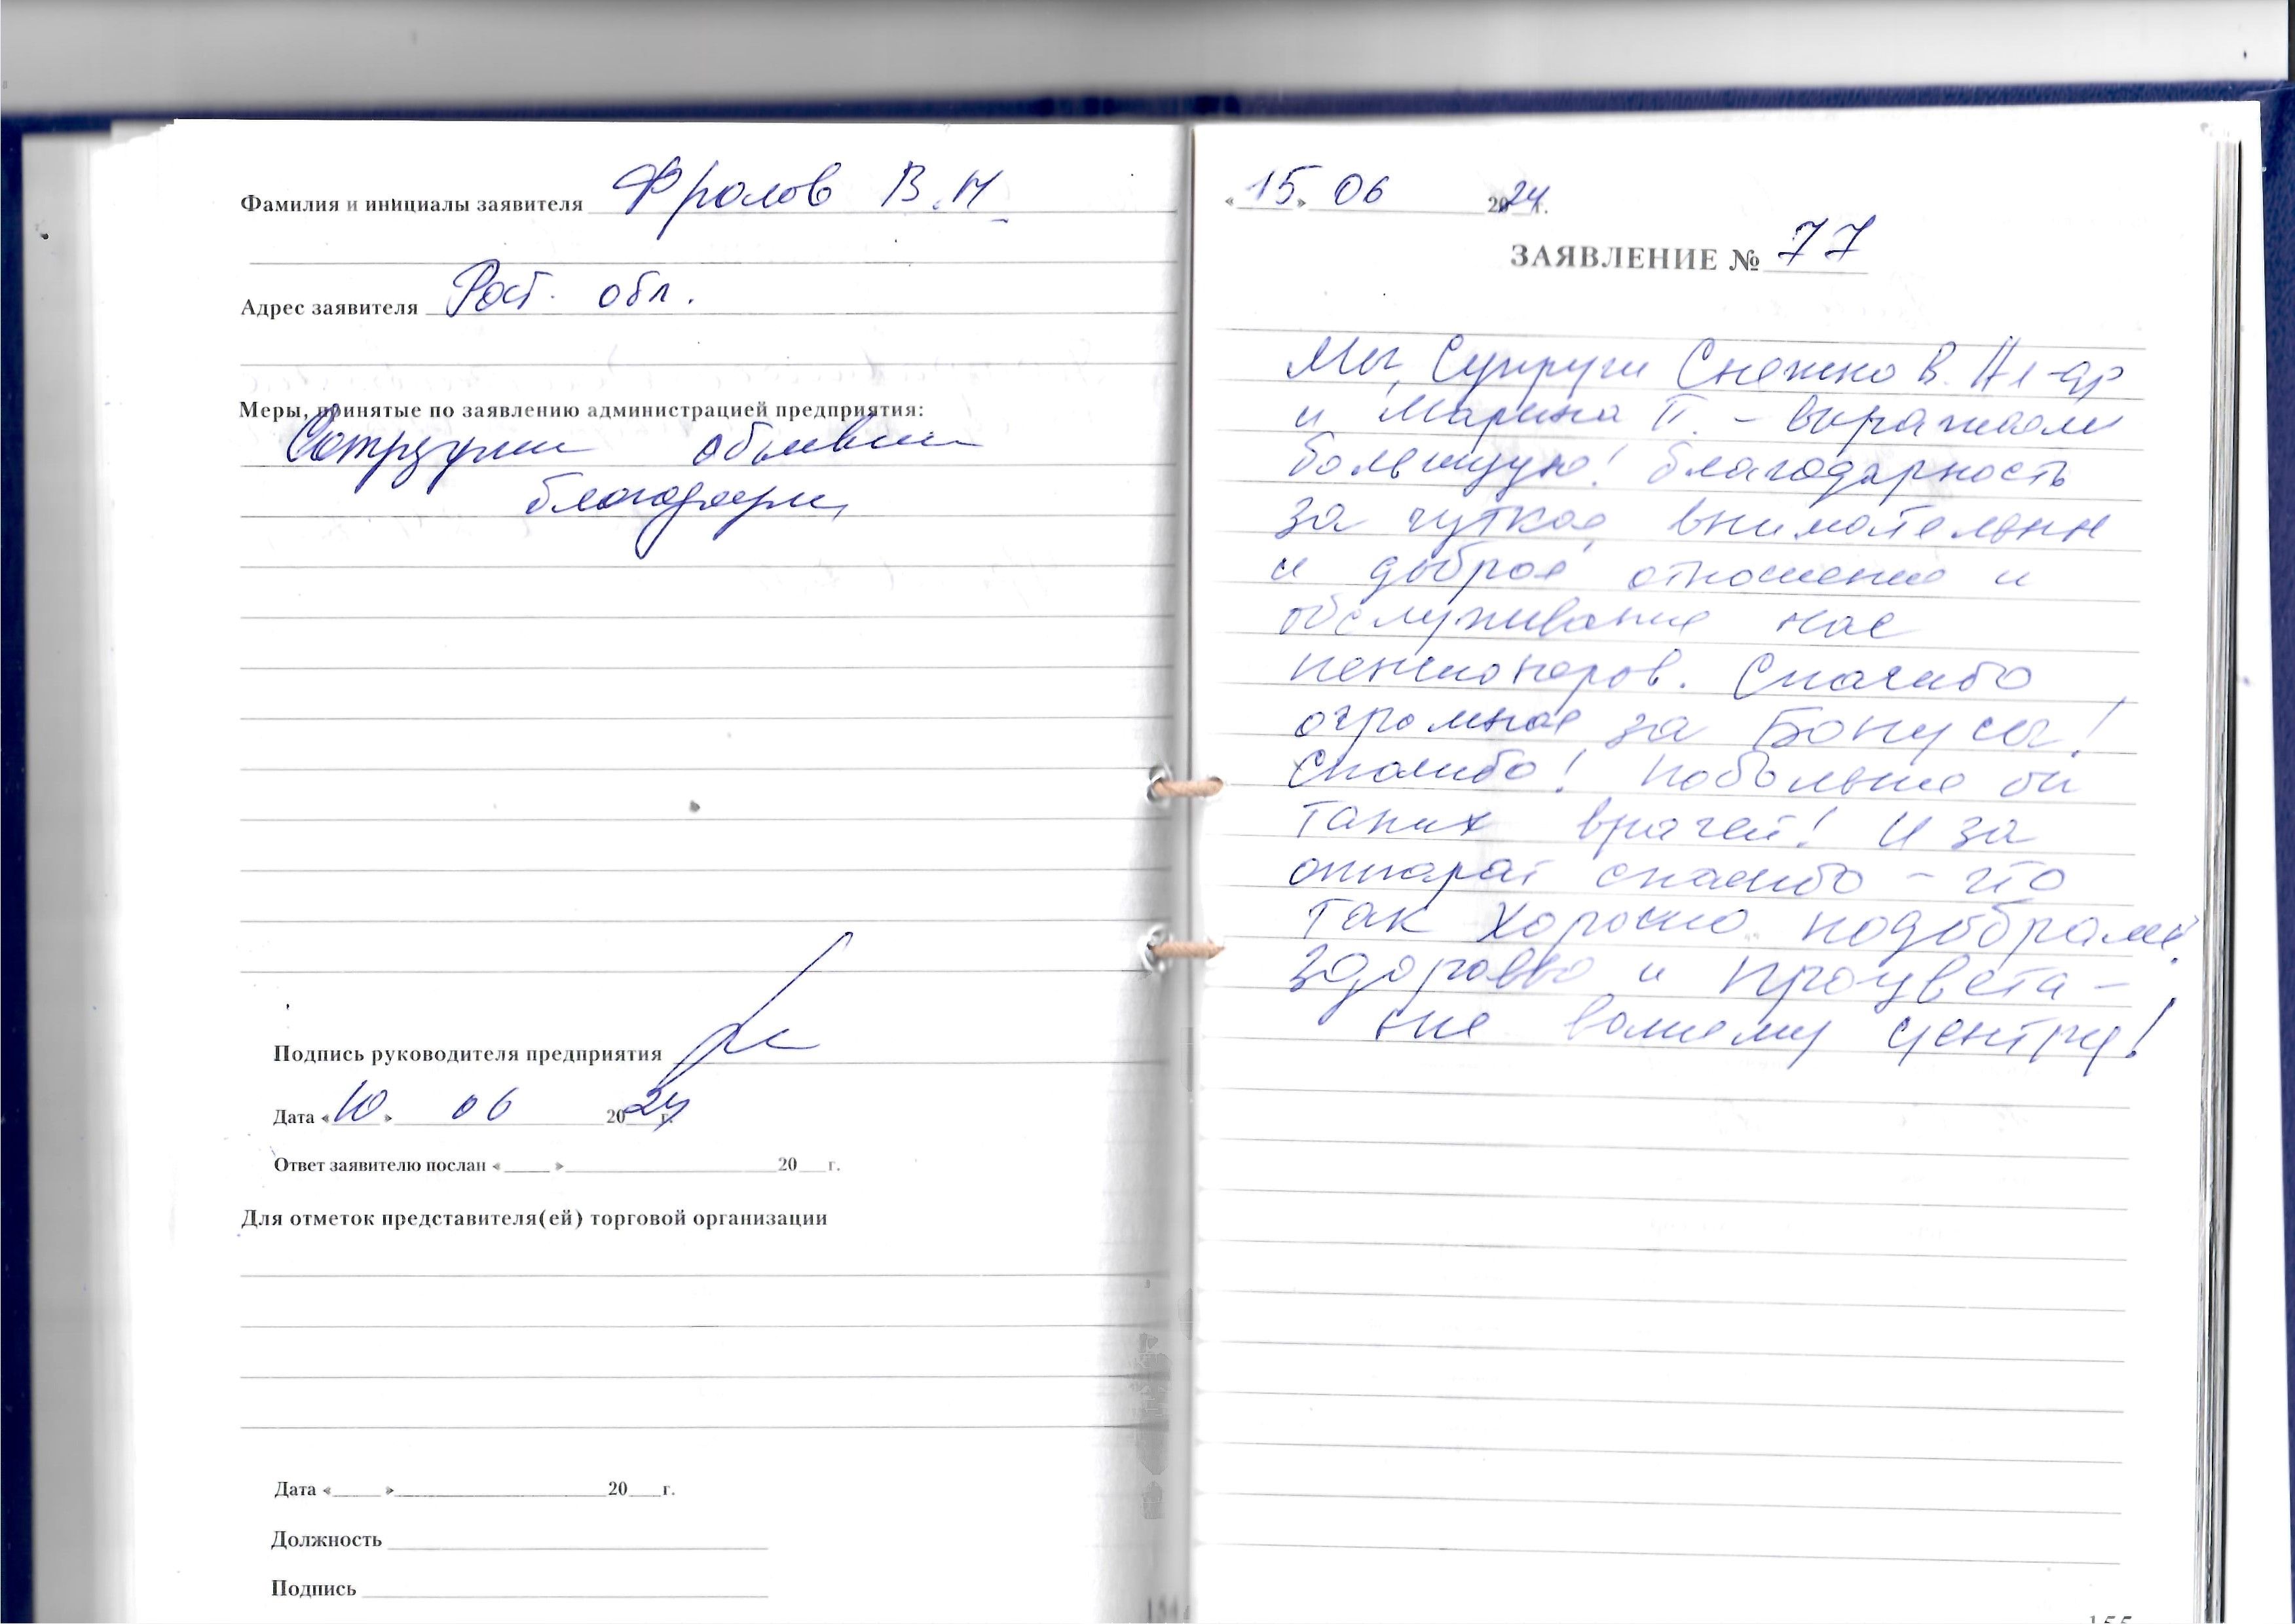 Фамилия и инициалы заявителя Фролов В.Н
Адрес заявителя Рост. обл.
Меры, принятые по заявлению администрацией предприятия:
благодарн
Подпись руководителя предприятия
Дата «10» 06 2024 г.
Ответ заявителю послан «» 20 г.
Для отметок представителя(ей) торговой организации
Дата «» 20 г.
Должность
Подпись
154
«15» 06 2024 г.
ЗАЯВЛЕНИЕ № 77
Мы, Супруги Снежко В. Ал-др
и Марина П. - выражаем
большущую! благодарность
за чуткое, внимательн
и доброе отношение и
обслуживание нас
пенсионеров. Спасибо
огромное за Бонусы!
Спасибо! Побольше бы
таких врачей! И за
аппарат спасибо - что
так хорошо подобрали!
Здоровья и процвета-
ние вашему центру!
155